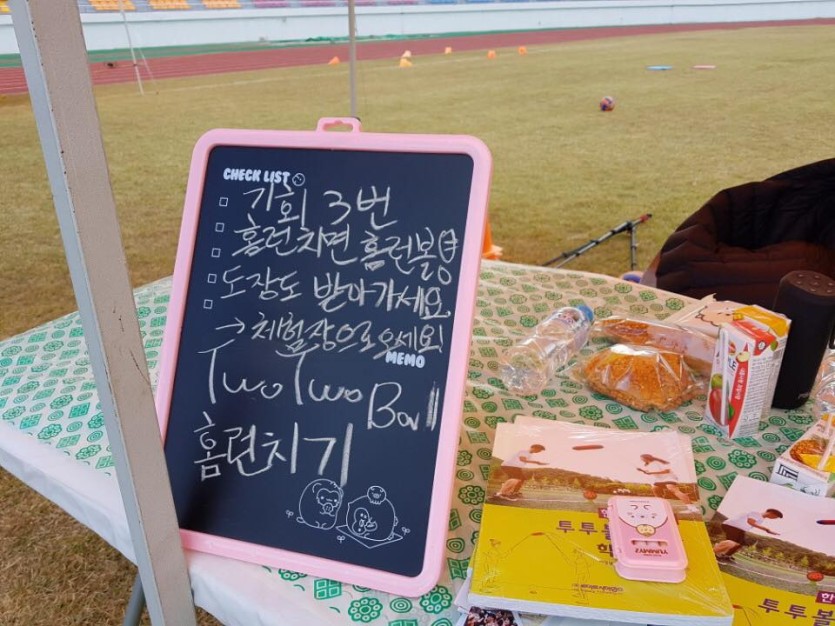 CHECK LIST
기회 3번
홈런치면 홈런볼
도장도 받아가세요.
→ 체험장으로 오세요!
MEMO
Two Two Ball
홈런치기
투투볼
YUMMY
한
투투볼